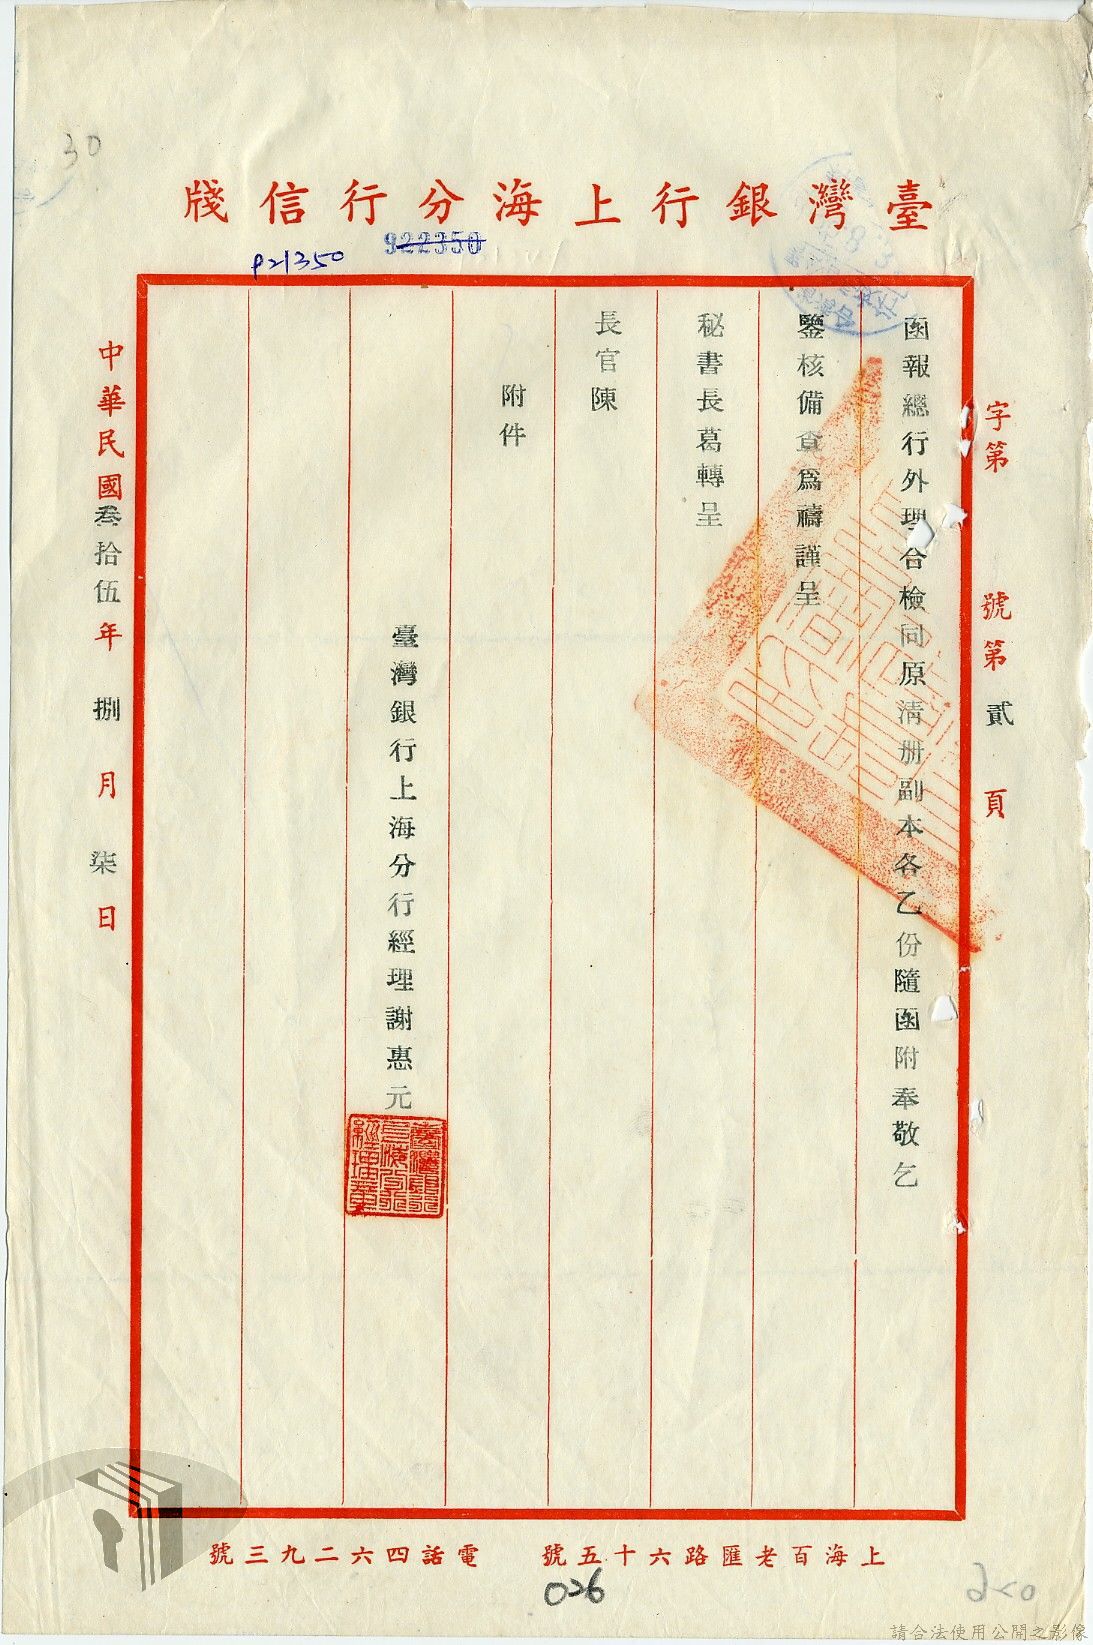 30
臺灣銀行上海分行信牋
922350
P21350
字第 號第貳頁
函報總行外理合檢同原清册副本各乙份隨函附奉敬乞
鑒核備查爲禱謹呈
秘書長葛轉呈
長官陳
附件
臺灣銀行上海分行經理謝惠元
中華民國叁拾伍年捌月柒日
上海百老匯路六十五號 電話四六二九三號
026
請合法使用公開之影像